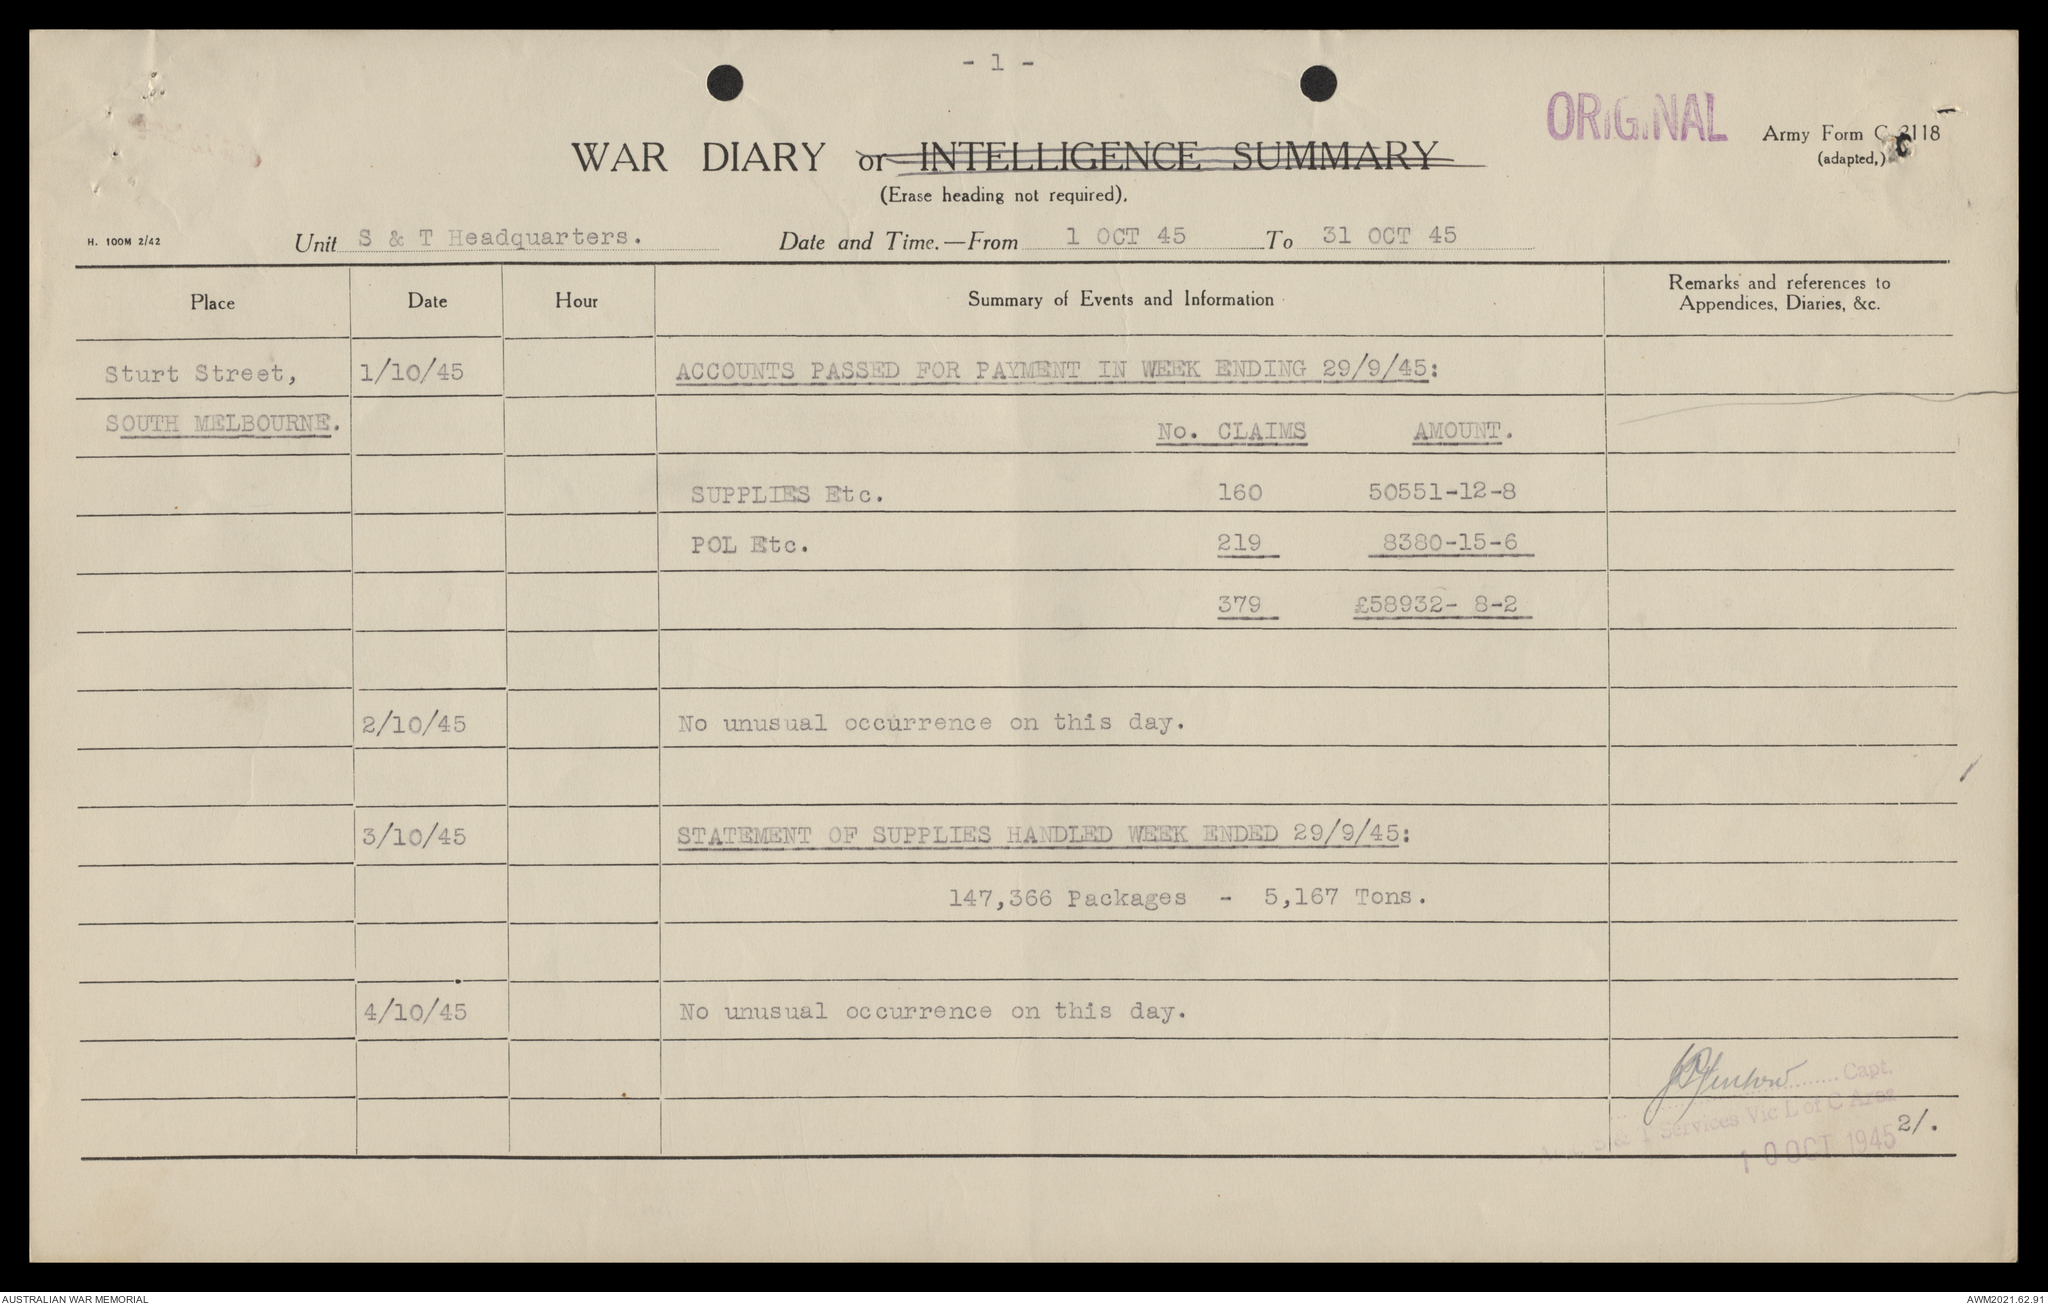 - 1 -
ORIGINAL
Army Form C 2118
(adapted,)
WAR DIARY or INTELLIGENCE SUMMARY
(Erase heading not required).
H. 100M 2/42
Unit S & T Headquarters. Date and Time.—From 1 OCT 45 To 31 OCT 45
Place Date Hour Summary of Events and Information Remarks and references to
Appendices, Diaries, &c.
Sturt Street, 1/10/45 ACCOUNTS PASSED FOR PAYMENT IN WEEK ENDING 29/9/45:
SOUTH MELBOURNE.
No. CLAIMS AMOUNT.
SUPPLIES Etc. 160 50551-12-8
POL Etc. 219 8380-15-6
379 £58932- 8-2
2/10/45 No unusual occurrence on this day.
3/10/45 STATEMENT OF SUPPLIES HANDLED WEEK ENDED 29/9/45:
147,366 Packages - 5,167 Tons.
4/10/45 No unusual occurrence on this day.
Capt.
S & T Services Vic L of C Area
2/.
10 OCT 1945
AUSTRALIAN WAR MEMORIAL
AWM2021.62.91